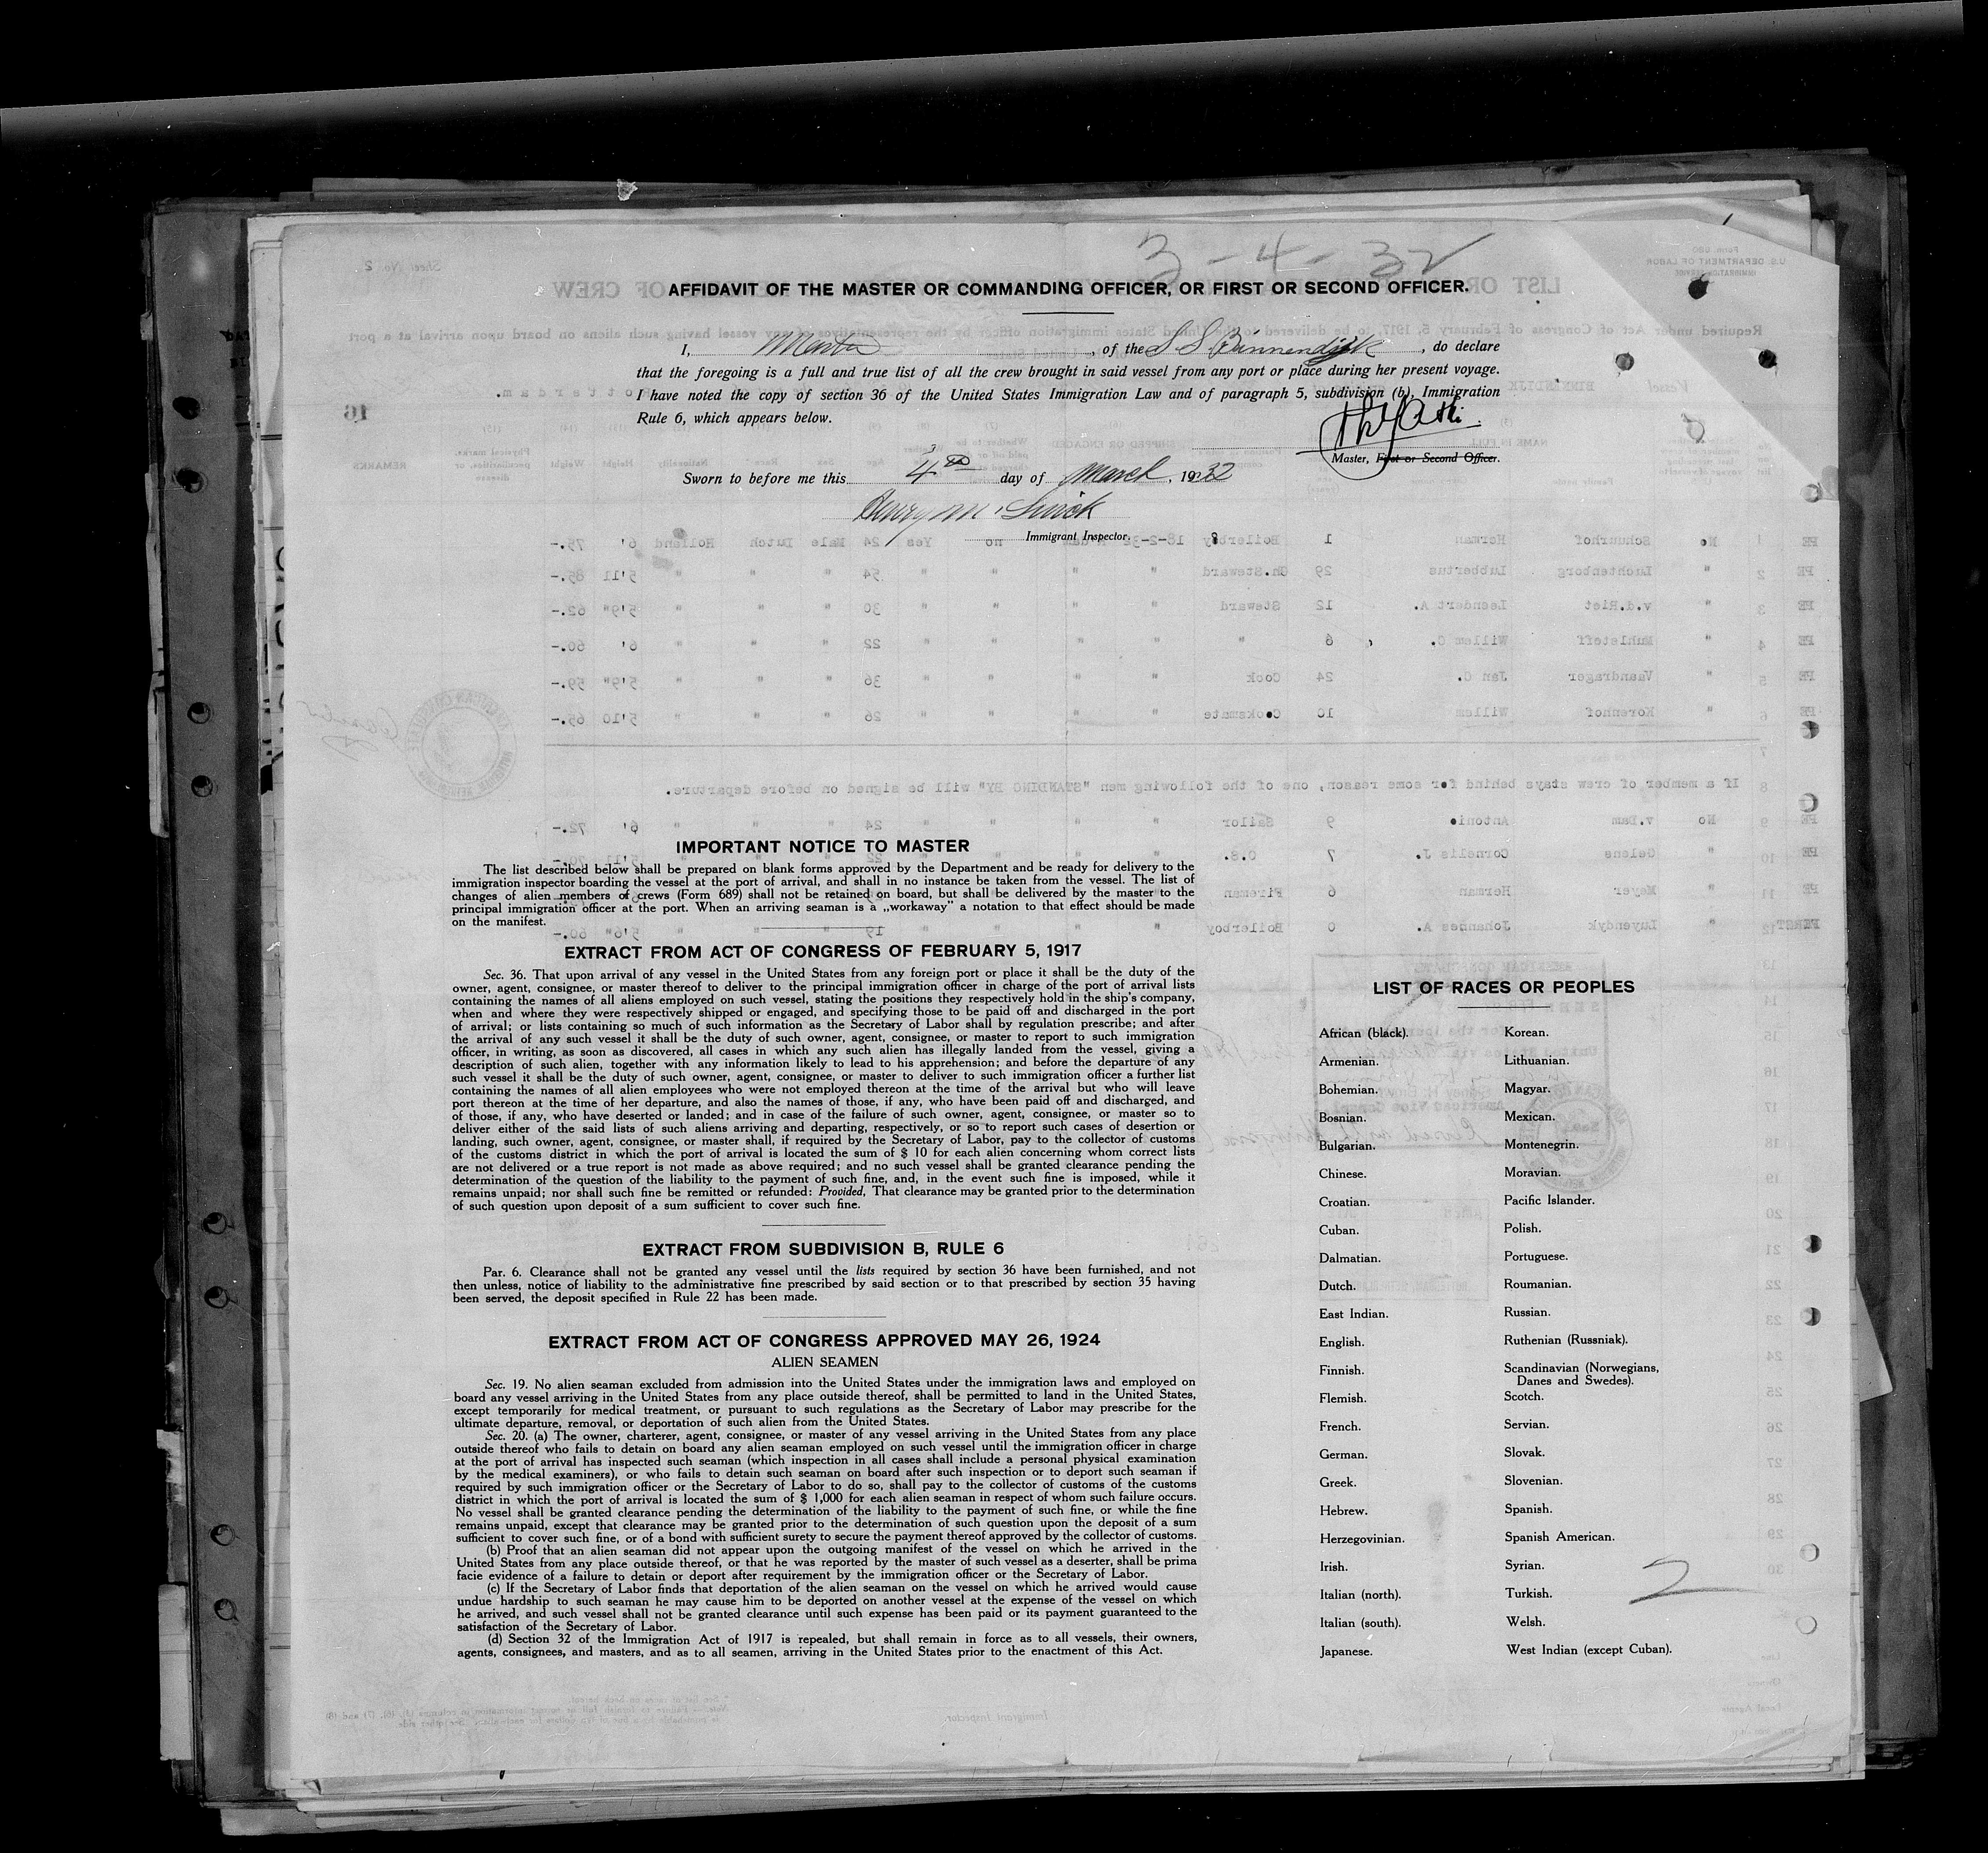 3 - 4 - 32
AFFIDAVIT OF THE MASTER OR COMMANDING OFFICER, OR FIRST OR SECOND OFFICER.
I, Master, of the S S Binnendijk, do declare
that the foregoing is a full and true list of all the crew brought in said vessel from any port or place during her present voyage.
I have noted the copy of section 36 of the United States Immigration Law and of paragraph 5, subdivision (b), Immigration
Rule 6, which appears below.
Master, First or Second Officer.
Sworn to before me this 4th day of March, 1932
Henry M.
Immigrant Inspector.
IMPORTANT NOTICE TO MASTER
The list described below shall be prepared on blank forms approved by the Department and be ready for delivery to the
immigration inspector boarding the vessel at the port of arrival, and shall in no instance be taken from the vessel. The list of
changes of alien members of crews (Form 689) shall not be retained on board, but shall be delivered by the master to the
principal immigration officer at the port. When an arriving seaman is a „workaway" a notation to that effect should be made
on the manifest.
EXTRACT FROM ACT OF CONGRESS OF FEBRUARY 5, 1917
Sec. 36. That upon arrival of any vessel in the United States from any foreign port or place it shall be the duty of the
owner, agent, consignee, or master thereof to deliver to the principal immigration officer in charge of the port of arrival lists
containing the names of all aliens employed on such vessel, stating the positions they respectively hold in the ship's company,
when and where they were respectively shipped or engaged, and specifying those to be paid off and discharged in the port
of arrival; or lists containing so much of such information as the Secretary of Labor shall by regulation prescribe; and after
the arrival of any such vessel it shall be the duty of such owner, agent, consignee, or master to report to such immigration
officer, in writing, as soon as discovered, all cases in which any such alien has illegally landed from the vessel, giving a
description of such alien, together with any information likely to lead to his apprehension; and before the departure of any
such vessel it shall be the duty of such owner, agent, consignee, or master to deliver to such immigration officer a further list
containing the names of all alien employees who were not employed thereon at the time of the arrival but who will leave
port thereon at the time of her departure, and also the names of those, if any, who have been paid off and discharged, and
of those, if any, who have deserted or landed; and in case of the failure of such owner, agent, consignee, or master so to
deliver either of the said lists of such aliens arriving and departing, respectively, or so to report such cases of desertion or
landing, such owner, agent, consignee, or master shall, if required by the Secretary of Labor, pay to the collector of customs
of the customs district in which the port of arrival is located the sum of $ 10 for each alien concerning whom correct lists
are not delivered or a true report is not made as above required; and no such vessel shall be granted clearance pending the
determination of the question of the liability to the payment of such fine, and, in the event such fine is imposed, while it
remains unpaid; nor shall such fine be remitted or refunded: Provided, That clearance may be granted prior to the determination
of such question upon deposit of a sum sufficient to cover such fine.
EXTRACT FROM SUBDIVISION B, RULE 6
Par. 6. Clearance shall not be granted any vessel until the lists required by section 36 have been furnished, and not
then unless, notice of liability to the administrative fine prescribed by said section or to that prescribed by section 35 having
been served, the deposit specified in Rule 22 has been made.
EXTRACT FROM ACT OF CONGRESS APPROVED MAY 26, 1924
ALIEN SEAMEN
Sec. 19. No alien seaman excluded from admission into the United States under the immigration laws and employed on
board any vessel arriving in the United States from any place outside thereof, shall be permitted to land in the United States,
except temporarily for medical treatment, or pursuant to such regulations as the Secretary of Labor may prescribe for the
ultimate departure, removal, or deportation of such alien from the United States.
Sec. 20. (a) The owner, charterer, agent, consignee, or master of any vessel arriving in the United States from any place
outside thereof who fails to detain on board any alien seaman employed on such vessel until the immigration officer in charge
at the port of arrival has inspected such seaman (which inspection in all cases shall include a personal physical examination
by the medical examiners), or who fails to detain such seaman on board after such inspection or to deport such seaman if
required by such immigration officer or the Secretary of Labor to do so, shall pay to the collector of customs of the customs
district in which the port of arrival is located the sum of $ 1,000 for each alien seaman in respect of whom such failure occurs.
No vessel shall be granted clearance pending the determination of the liability to the payment of such fine, or while the fine
remains unpaid, except that clearance may be granted prior to the determination of such question upon the deposit of a sum
sufficient to cover such fine, or of a bond with sufficient surety to secure the payment thereof approved by the collector of customs.
(b) Proof that an alien seaman did not appear upon the outgoing manifest of the vessel on which he arrived in the
United States from any place outside thereof, or that he was reported by the master of such vessel as a deserter, shall be prima
facie evidence of a failure to detain or deport after requirement by the immigration officer or the Secretary of Labor.
(c) If the Secretary of Labor finds that deportation of the alien seaman on the vessel on which he arrived would cause
undue hardship to such seaman he may cause him to be deported on another vessel at the expense of the vessel on which
he arrived, and such vessel shall not be granted clearance until such expense has been paid or its payment guaranteed to the
satisfaction of the Secretary of Labor.
(d) Section 32 of the Immigration Act of 1917 is repealed, but shall remain in force as to all vessels, their owners,
agents, consignees, and masters, and as to all seamen, arriving in the United States prior to the enactment of this Act.
LIST OF RACES OR PEOPLES
African (black).
Armenian.
Bohemian.
Bosnian.
Bulgarian.
Chinese.
Croatian.
Cuban.
Dalmatian.
Dutch.
East Indian.
English.
Finnish.
Flemish.
French.
German.
Greek.
Hebrew.
Herzegovinian.
Irish.
Italian (north).
Italian (south).
Japanese.
Korean.
Lithuanian.
Magyar.
Mexican.
Montenegrin.
Moravian.
Pacific Islander.
Polish.
Portuguese.
Roumanian.
Russian.
Ruthenian (Russniak).
Scandinavian (Norwegians,
Danes and Swedes).
Scotch.
Servian.
Slovak.
Slovenian.
Spanish.
Spanish American.
Syrian.
Turkish.
Welsh.
West Indian (except Cuban).
2